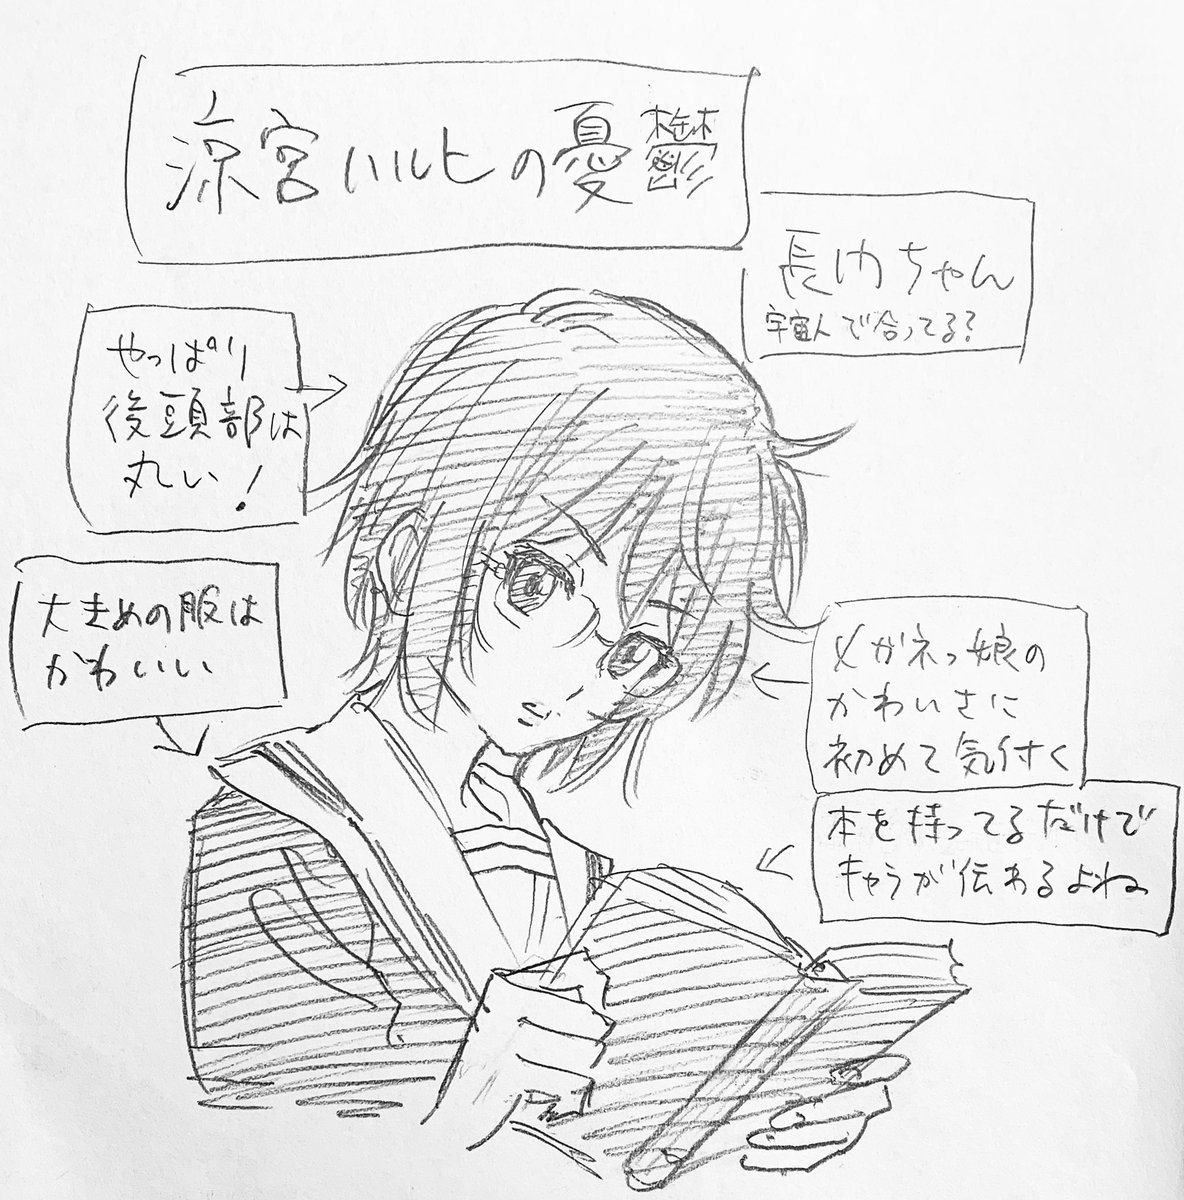 涼宮ハルヒの憂鬱
長門ちゃん
宇宙人で合ってる?
やっぱり
後頭部は
丸い!
大きめの服は
かわいい
メガネっ娘の
かわいさに
初めて気付く
本を持ってるだけで
キャラが伝わるよね